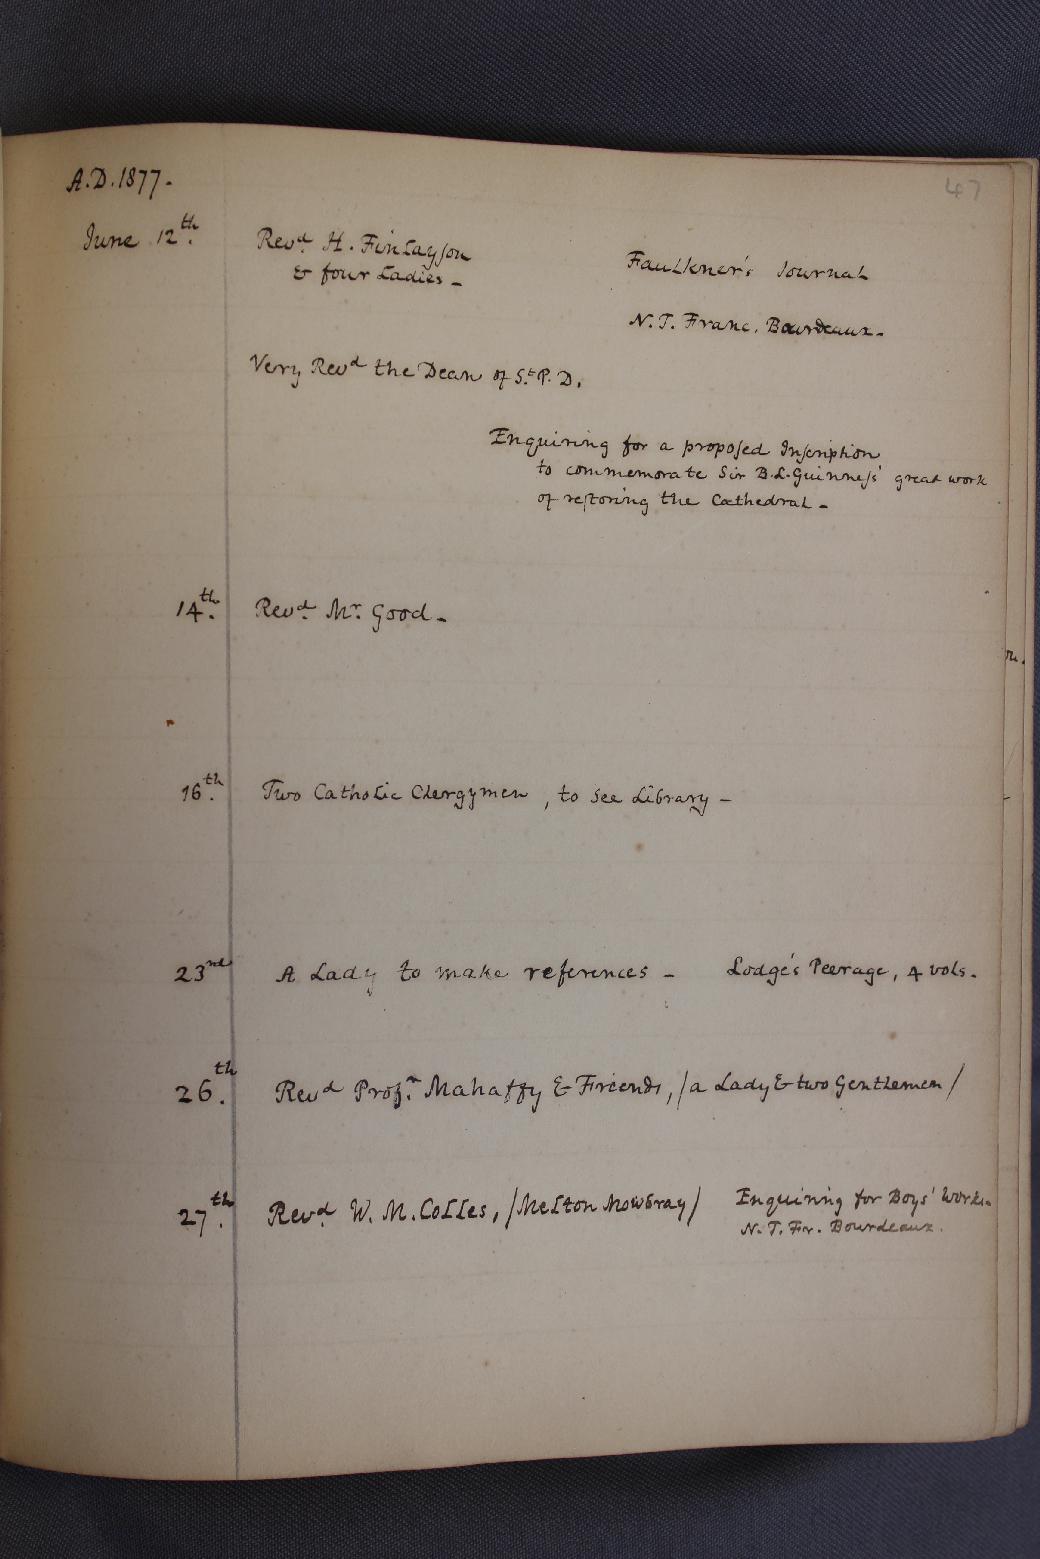 47
A.D. 1877.
June 12th. Revd. H. Finlayson
& four Ladies -
Faulkner's Journal
N. T. Franc. Bourdeaux.
Very Revd the Dean of St. P. D.
Enquiring for a proposed Inscription
to commemorate Sir B. L. Guinness' great work
of restoring the Cathedral -
14th. Revd. Mr. Good -
16th. Two Catholic Clergymen, to see Library -
23rd A Lady to make references - Lodge's Peerage, 4 vols.
26th. Revd Profr. Mahaffy & Friends, /a Lady & two Gentlemen/
27th. Revd. W. M. Colles, /Melton Mowbray/ Enquiring for Boys' Works.
N. T. Fr. Bourdeaux.